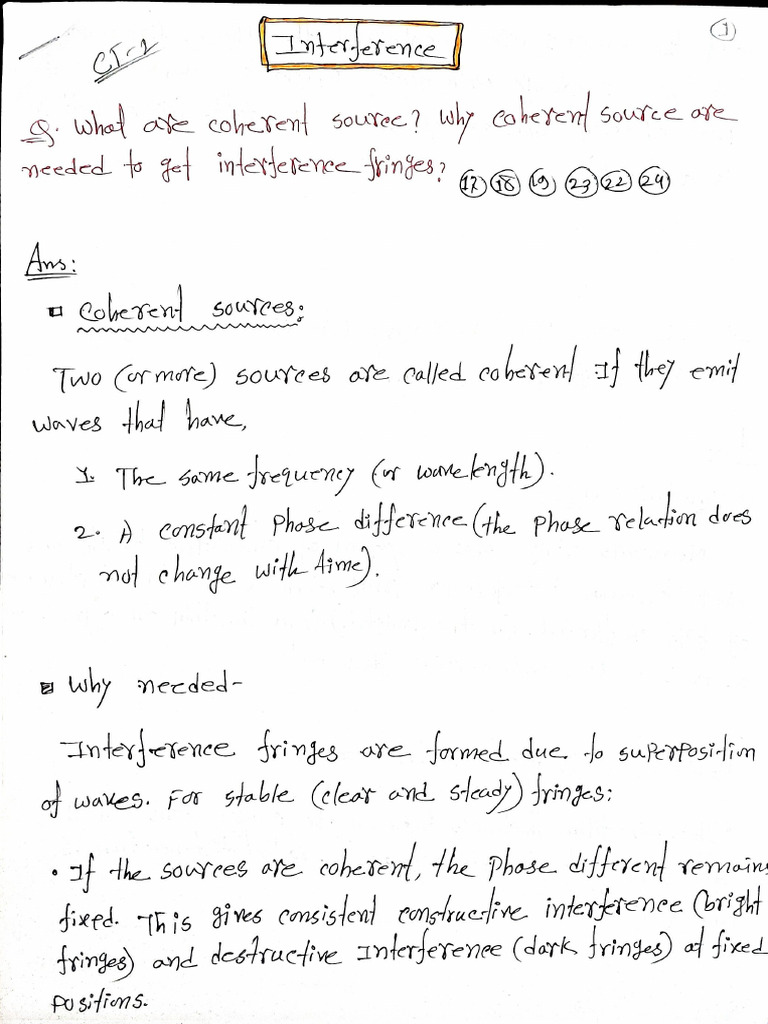 1
CT-1
Interference
Q. What are coherent source? Why coherent source are
needed to get interference fringes? 17 18 19 23 22 24
Ans:
Coherent sources:
Two (or more) sources are called coherent If they emit
waves that have,
1. The same frequency (or wavelength).
2. A constant Phase difference (the Phase relation does
not change with time).
Why needed-
Interference fringes are formed due to superposition
of waves. For stable (clear and steady) fringes:
• If the sources are coherent, the Phase different remains
fixed. This gives consistent constructive interference (bright
fringes) and destructive Interference (dark fringes) at fixed
positions.